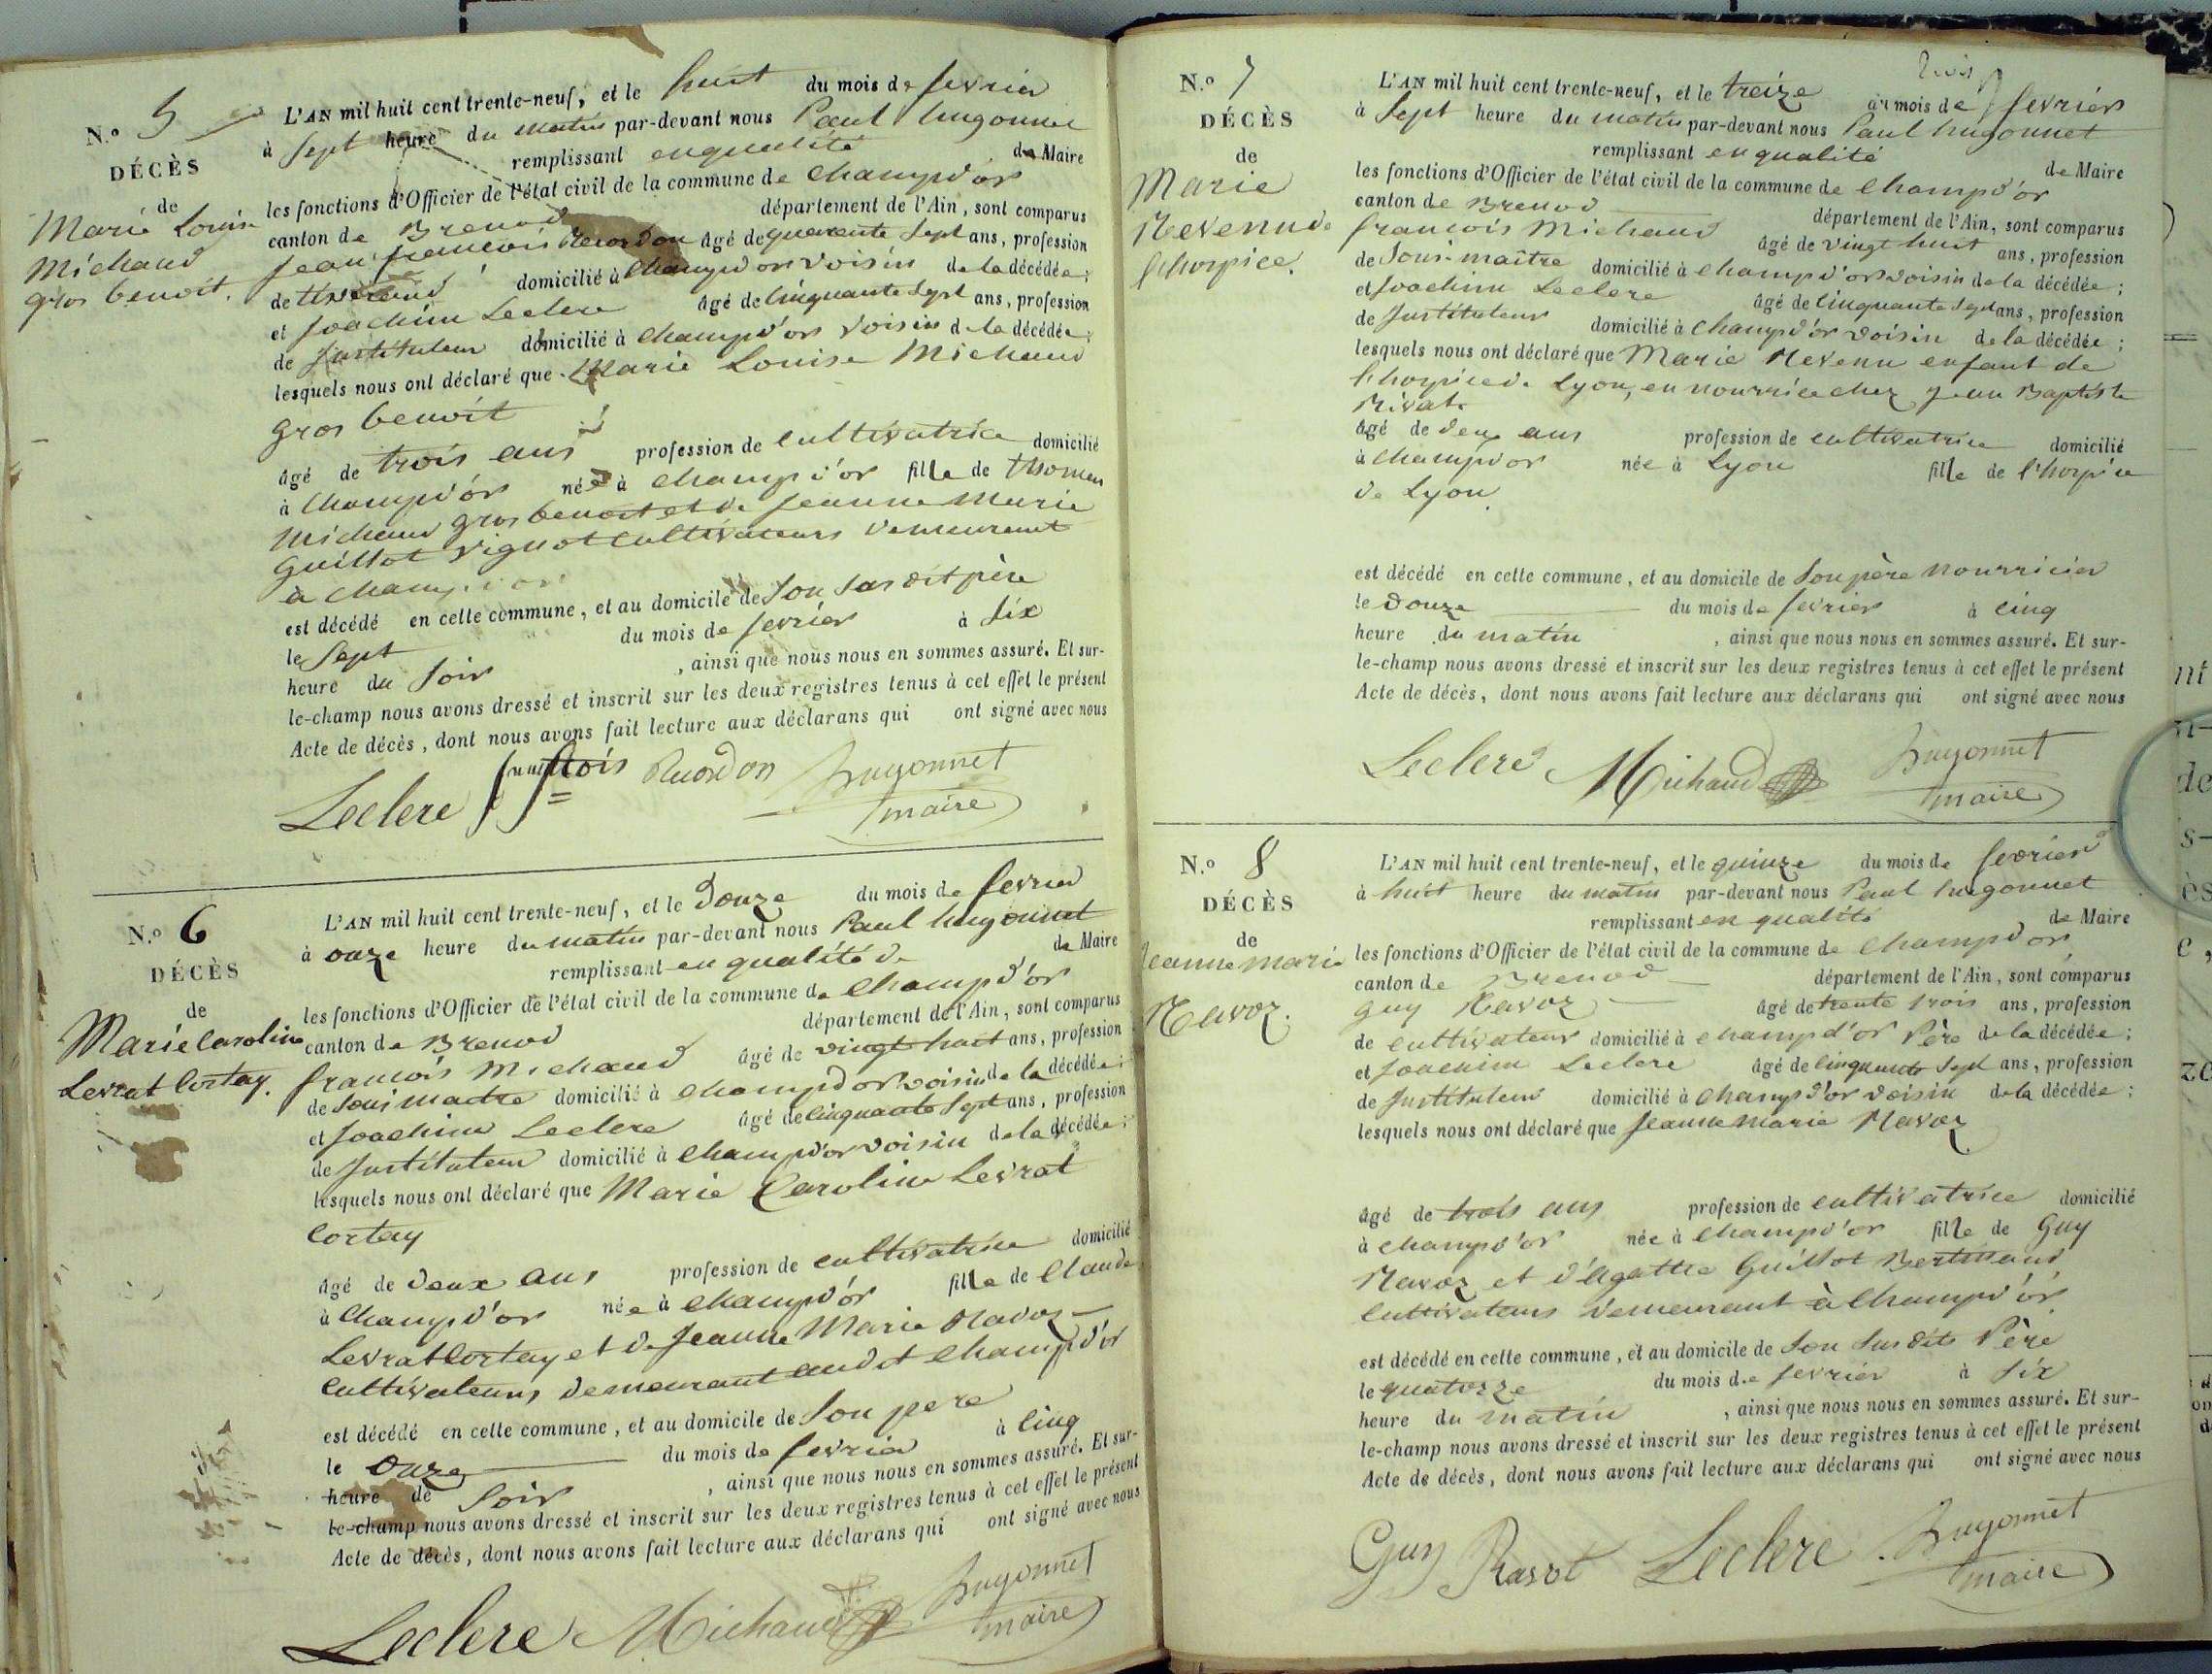 N.o 5
DÉCÈS
de
Marie Louise
Michaud
gros benoit.
L'AN mil huit cent trente-neuf, et le huit du mois de fevrier
à Sept heure du matin par-devant nous Paul hugonnet
remplissant en qualité de Maire
les fonctions d'Officier de l'état civil de la commune de Champd'or
canton de Brenod département de l'Ain, sont comparus
Jean françois Ruordon âgé de quarante Sept ans, profession
de domicilié à Champd'or voisin de la décédée;
et Joachim Leclere âgé de Cinquante Sept ans, profession
de Instituteur domicilié à Champd'or voisin de la décédée;
lesquels nous ont déclaré que Marie Louise Michaud
gros benoit
âgé de trois ans profession de Cultivatrice domicilié
à Champd'or née à Champd'or fille de thomas
Michaud gros benoit et de Jeanne Marie
Guillot vignot Cultivateurs demeurant
à Champd'or
est décédé en cette commune, et au domicile de Son Sus dit père
le Sept du mois de fevrier à Six
heure du Soir, ainsi que nous nous en sommes assuré. Et sur-
le-champ nous avons dressé et inscrit sur les deux registres tenus à cet effet le présent
Acte de décès, dont nous avons fait lecture aux déclarans qui ont signé avec nous
Leclere Ruordon hugonnet
maire
N.o 6
DÉCÈS
de
Marie Caroline
Levrat Cortay.
L'AN mil huit cent trente-neuf, et le Douze du mois de fevrier
à onze heure du matin par-devant nous Paul hugonnet
remplissant en qualité de de Maire
les fonctions d'Officier de l'état civil de la commune de Champd'or
canton de Brenod département de l'Ain, sont comparus
françois Michaud âgé de vingt huit ans, profession
de Sous maitre domicilié à Champdor voisin de la décédée;
et Joachim Leclere âgé de Cinquante Sept ans, profession
de Instituteur domicilié à Champd'or voisin de la décédée;
lesquels nous ont déclaré que Marie Caroline Levrat
Cortay
âgé de deux ans profession de cultivatrice domicilié
à Champd'or née à Champd'or fille de Claude
Levrat Cortay et de Jeanne Marie Ravoz
Cultivateurs demeurant audit Champd'or
est décédé en cette commune, et au domicile de Son pere
le onze du mois de fevrier à Cinq
heure de Soir, ainsi que nous nous en sommes assuré. Et sur-
le-champ nous avons dressé et inscrit sur les deux registres tenus à cet effet le présent
Acte de décès, dont nous avons fait lecture aux déclarans qui ont signé avec nous
Leclere Michaud hugonnet
maire
N.o 7
DÉCÈS
de
Marie
Revenu de
l'hospice.
L'AN mil huit cent trente-neuf, et le treize du mois de fevrier
à Sept heure du matin par-devant nous Paul hugonnet
remplissant en qualité de Maire
les fonctions d'Officier de l'état civil de la commune de Champd'or
canton de Brenod département de l'Ain, sont comparus
françois Michaud âgé de vingt huit ans, profession
de Sous-maître domicilié à Champd'or voisin de la décédée;
et Joachim Leclere âgé de Cinquante Sept ans, profession
de Instituteur domicilié à Champd'or voisin de la décédée;
lesquels nous ont déclaré que Marie Revenu enfant de
l'hospice de Lyon, en nourrice chez Jean Baptiste
Rivat
âgé de deux ans profession de cultivatrice domicilié
à Champd'or née à Lyon fille de l'hospice
de Lyon.
est décédé en cette commune, et au domicile de Son père nourricier
le douze du mois de fevrier à Cinq
heure du matin, ainsi que nous nous en sommes assuré. Et sur-
le-champ nous avons dressé et inscrit sur les deux registres tenus à cet effet le présent
Acte de décès, dont nous avons fait lecture aux déclarans qui ont signé avec nous
Leclere Michaud hugonnet
maire
N.o 8
DÉCÈS
de
Jeanne marie
Ravoz.
L'AN mil huit cent trente-neuf, et le quinze du mois de fevrier
à huit heure du matin par-devant nous Paul hugonnet
remplissant en qualité de Maire
les fonctions d'Officier de l'état civil de la commune de Champd'or
canton de Brenod département de l'Ain, sont comparus
Guy Ravoz âgé de trente trois ans, profession
de cultivateur domicilié à Champd'or Père de la décédée;
et Joachim Leclere âgé de Cinquante Sept ans, profession
de Instituteur domicilié à Champd'or voisin de la décédée;
lesquels nous ont déclaré que Jeanne marie Ravoz
âgé de trois ans profession de cultivatrice domicilié
à Champd'or née à Champd'or fille de Guy
Ravoz et d'Agathe Guillot Bertrand
Cultivateurs demeurant à Champd'or.
est décédé en cette commune, et au domicile de Son Sus dit Père
le quatorze du mois de fevrier à Six
heure du matin, ainsi que nous nous en sommes assuré. Et sur-
le-champ nous avons dressé et inscrit sur les deux registres tenus à cet effet le présent
Acte de décès, dont nous avons fait lecture aux déclarans qui ont signé avec nous
Guy Ravot Leclere hugonnet
maire